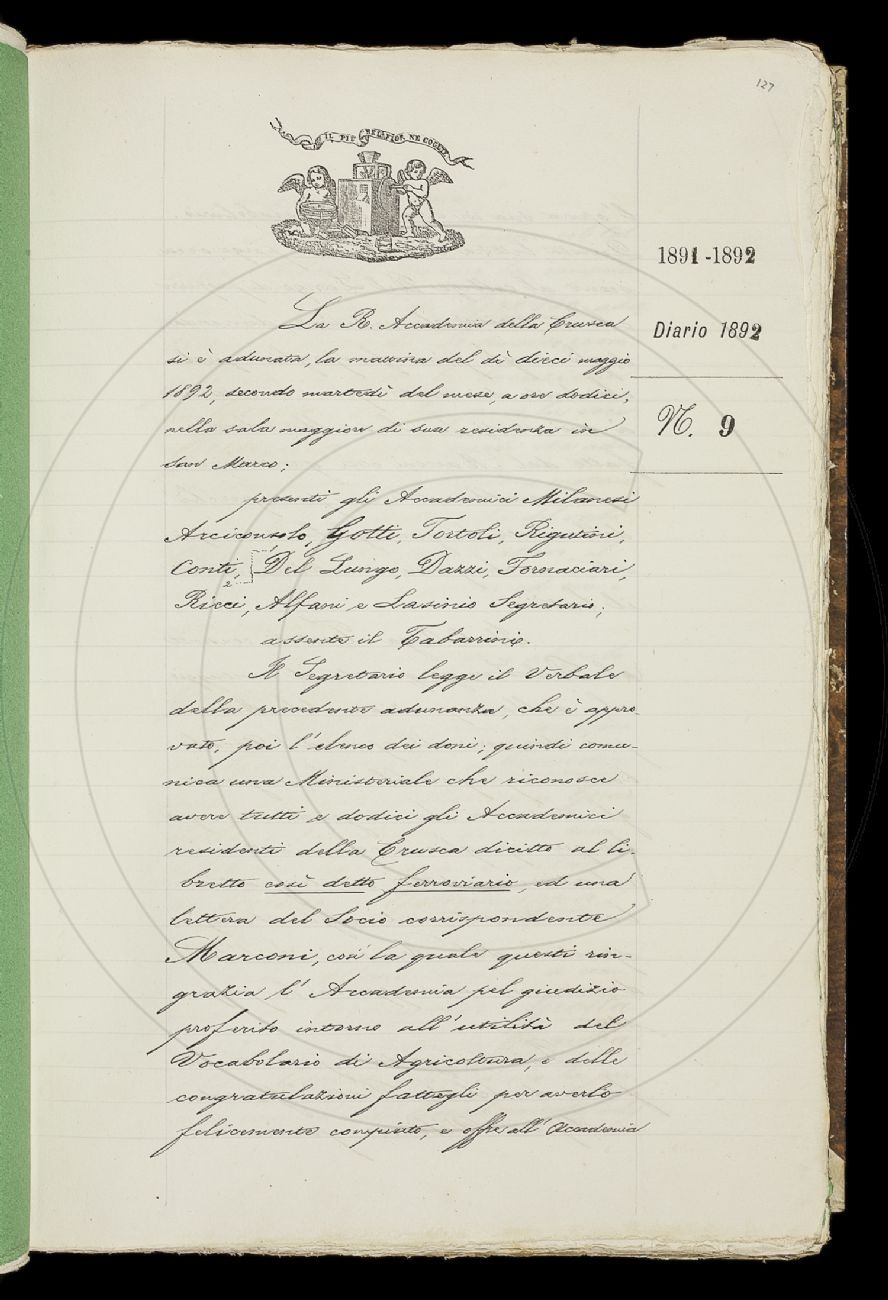 127
IL PIÙ BEL FIOR NE COGLIE
1891-1892
Diario 1892
N. 9
La R. Accademia della Crusca
si è adunata, la mattina del dì dieci maggio
1892, secondo martedì del mese, a ore dodici,
nella sala maggiore di sua residenza in
San Marco;
presenti gli Accademici Milanesi
Arciconsolo, Gotti, Tortoli, Rigutini,
Conti, Del Lungo, Dazzi, Fornaciari,
2
Ricci, Alfani e Lasinio Segretario;
assente il Tabarrini.
Il Segretario legge il Verbale
della precedente adunanza, che è appro-
vato; poi l'elenco dei doni; quindi comu-
nica una Ministeriale che riconosce
avere tutti e dodici gli Accademici
residenti della Crusca diritto al li-
bretto così detto ferroviario, ed una
lettera del Socio corrispondente
Marconi, con la quale questi rin-
grazia l'Accademia pel giudizio
proferito intorno all'utilità del
Vocabolario di Agricoltura, e delle
congratulazioni fattegli per averlo
felicemente compiuto, e offre all'Accademia